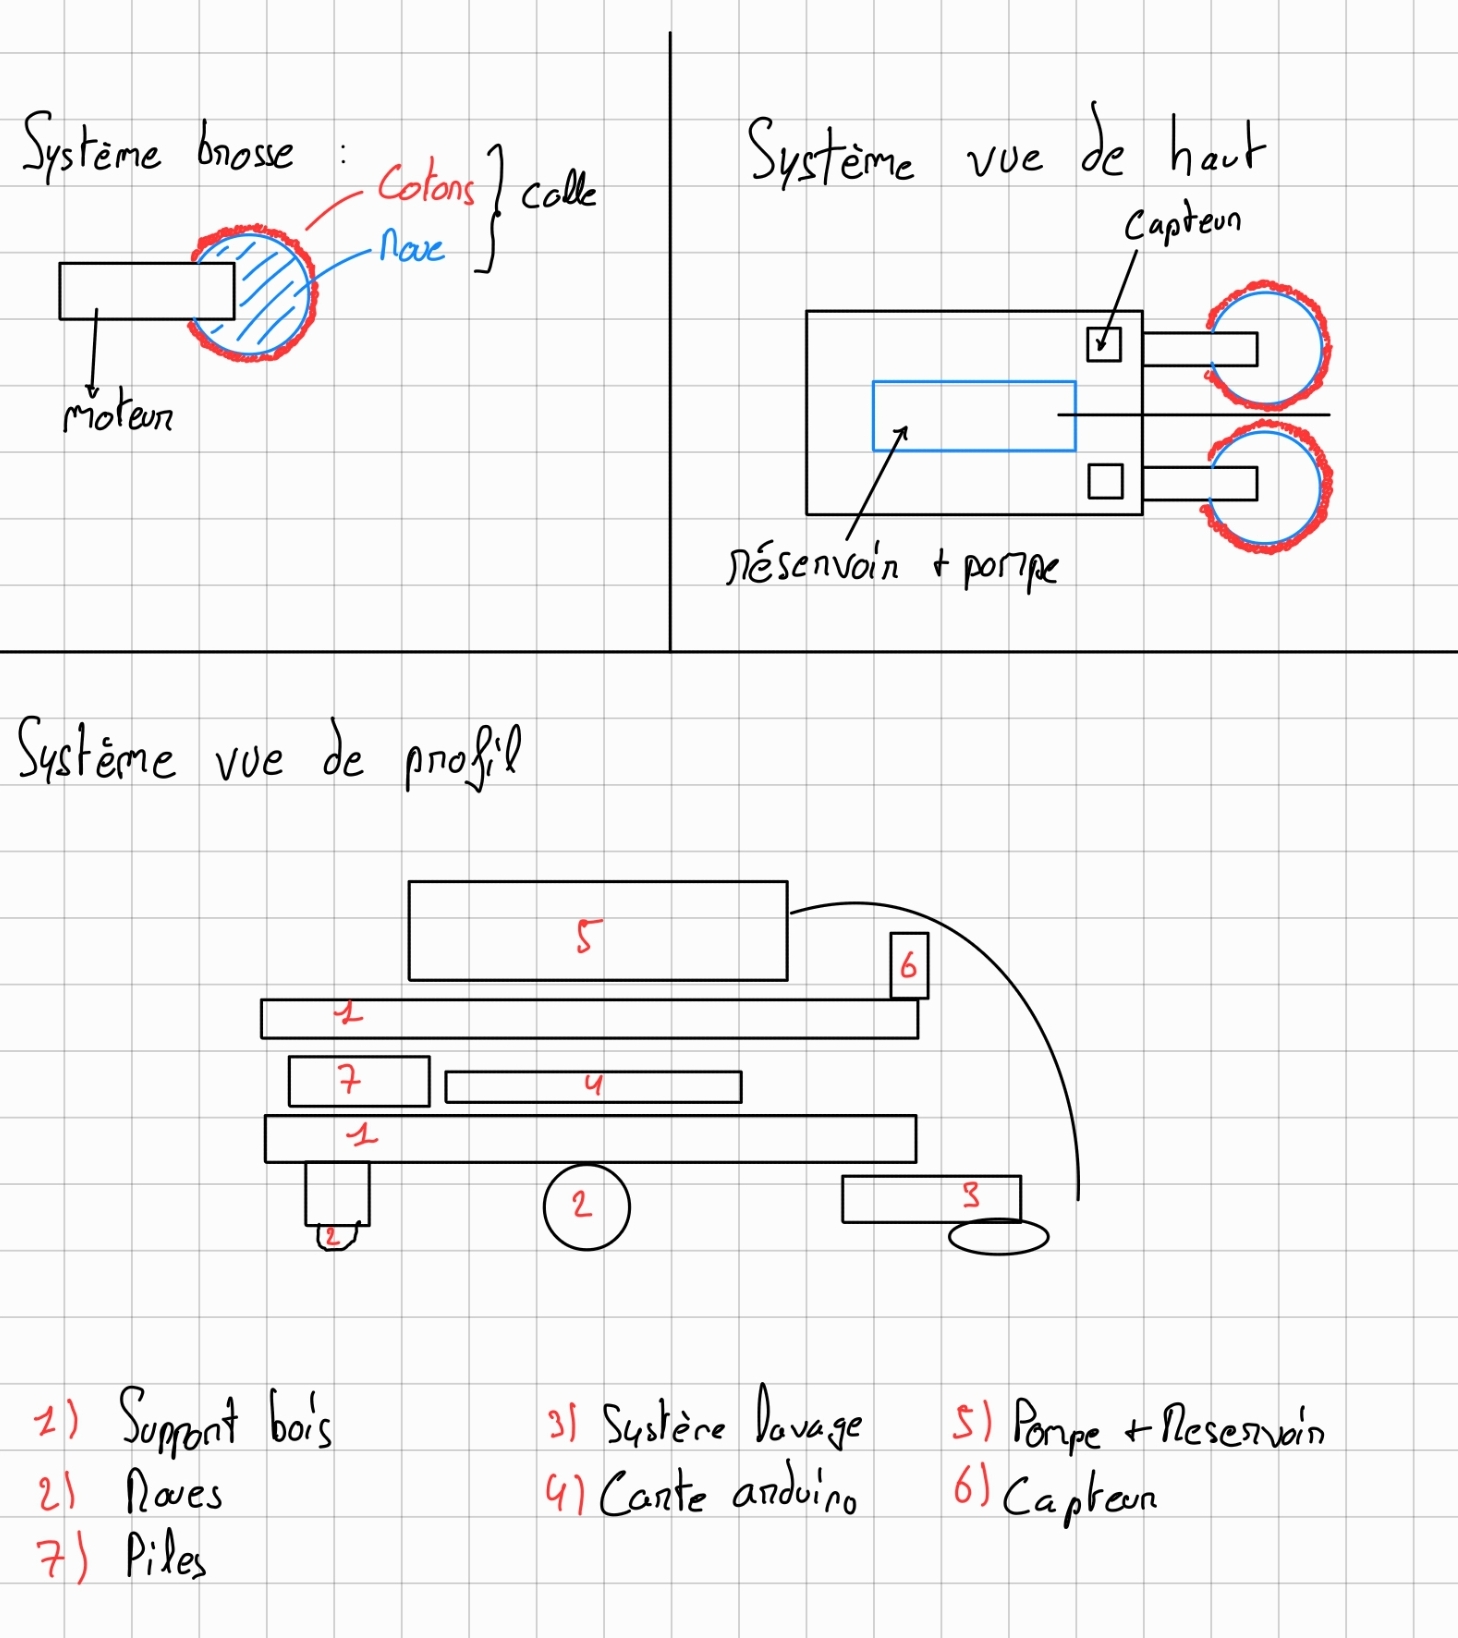 Système brosse :
Cotons
colle
Roue
moteur
Système vue de haut
Capteur
Réservoir + pompe
Système vue de profil
5
6
1
7
4
1
2
3
2
1) Support bois
2) Roues
7) Piles
3) Système lavage
4) Carte arduino
5) Pompe + Reservoir
6) Capteur